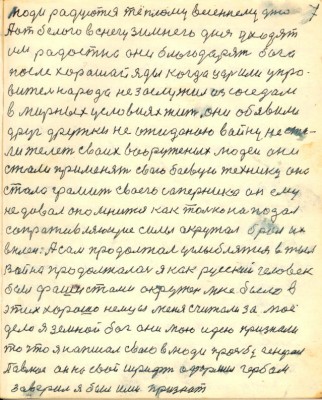 7
Люди радуются тёплому весеннему дню
А от белого в снегу зимнего дня уходят
им радостно они благодарят бога
после хорошай яды когда цар или упра-
вител народа не заслужил ос соседам
в мирных условиях жит, они обявили
друг дружки не ожиданою вайну не ста-
ли желет своих вооруженых людей они
стали применят свою боевую технику она
стала громит своего саперника он ему
не довал опомнится как только на подал
сопративляющие силы окружал брал их
вплен: А сам продолжал углыблятся в тыл
Война продолжалая я как русский человек
был фашистами окружон мне было в
этих хорошо немцы меня считали за моё
дело Я земной бог они мою идею признали
то что я написал сваю в люди прозбу генерал
Главное он на свой шридт отправил гербам
заверил я был ими признат